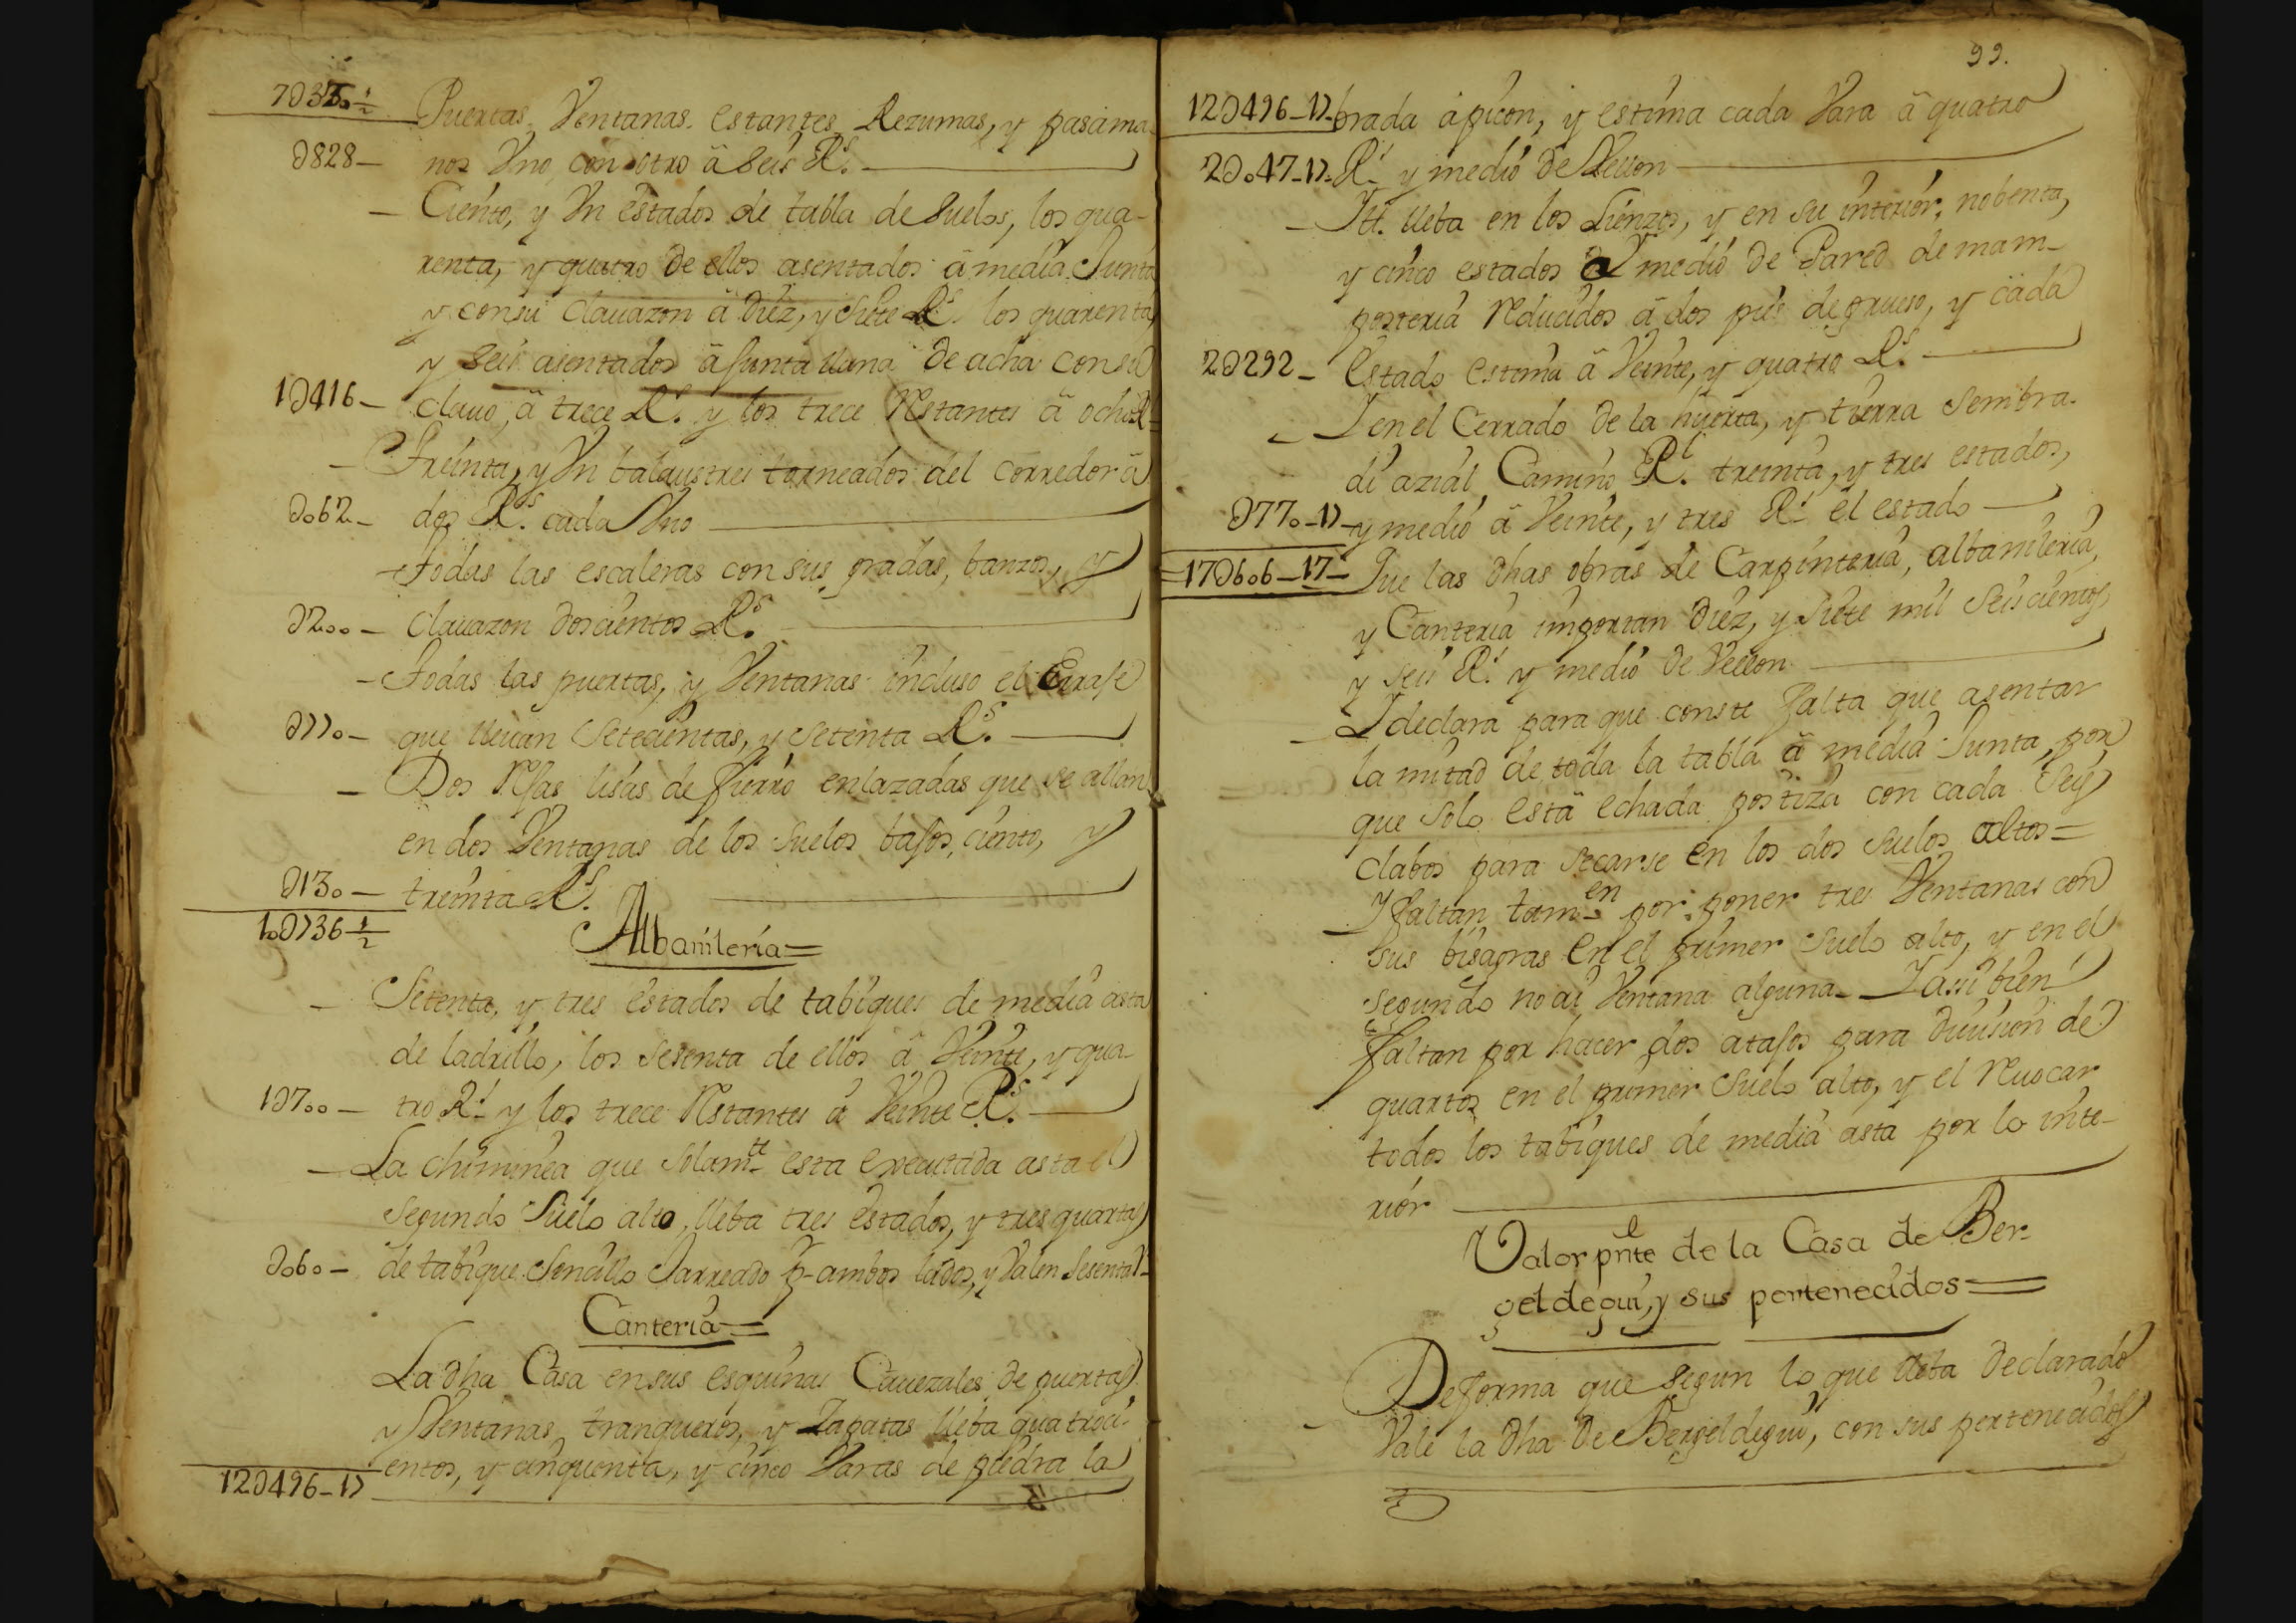 7U330 1/2
Puertas, Ventanas, estantes Rezumas, y pasama-
U828 — nos Vno, con otro â seis R.s
— Ciento, y Vn estados de tabla de suelos, los qua-
renta, y quatro de ellos asentados â media Junta
y consu clauazon â diez, y siete R.s los quarenta,
y seis asentados â Junta llana de acha consu
1U416 — clauo, â trece R.s y los trece restantes â ocho R.
— Treinta, y Vn balaustres torneados del corredor â
U062 — dos R.s cada Vno
— Todas las escaleras con sus gradas, banzos, y
U200 — clauazon doscientos R.s
— Todas las puertas, y Ventanas incluso el Erraje
U770 — que lleuan Setecientas, y setenta R.s
— Dos Rejas lisas de fierro enlazadas que se allan
en dos Ventanas de los suelos bajos, ciento, y
U130 — treinta R.s
10U736 1/2
Albanileria =
— Setenta, y tres estados de tabiques de media asta
de ladrillo, los sesenta de ellos â Veinte, y qua-
1U700 — tro R.s y los trece restantes â Veinte R.s
— La chiminea que solam.te esta executada asta el
segundo Suelo alto, lleba tres estados, y tres quartas
U060 — de tabique sencillo Jarreado p.r ambos lados, y Valen sesenta R.s
Canteria =
La dha Casa ensus esquinas Cauezales de puertas,
y Ventanas, tranqueros, y Zapatas lleba quatroci-
entos, y cinquenta, y cinco Varas de piedra la
12U496-17
99.
12U496-17- brada apicon, y estima cada Vara â quatro
2U047-17- R.s y medio de Vellon
— Itt. lleba en los Lienzos, y en su interior, nobenta,
y cinco estados y medio de Pared de mam-
posteria reducidos â dos pies de grueso, y cada
2U292 — Estado estima â Veinte, y quatro R.s
— I en el Cerrado de la huerta, y tierra sembra-
di azia el Camino R.l treinta, y tres estados,
U770-17- y medio â Veinte, y tres R.s el estado
17U606-17- Que las dhas obras de Carpinteria, albanileria,
y Canteria importan Diez, y siete mil Seiscientos,
y seis R.s y medio de Vellon
— I declara para que conste falta que asentar
la mitad de toda la tabla â media Junta, por
que solo está echada postiza con cada Seis
clabos para secarse en los dos suelos altos =
— I faltan tam.en por poner tres Ventanas con
sus bisagras en el primer suelo alto, y en el
segundo no ai Ventana alguna — I assi bien
faltan por hacer dos atajos para diuision de
quartos en el primer suelo alto, y el reuocar
todos los tabiques de media asta por lo inte-
rior
Valor pnte de la Casa de Ber-
geldegui, y sus pertenecidos =
— De forma que segun lo que lleba declarado
Vale la dha de Bergeldegui, con sus pertenecidos